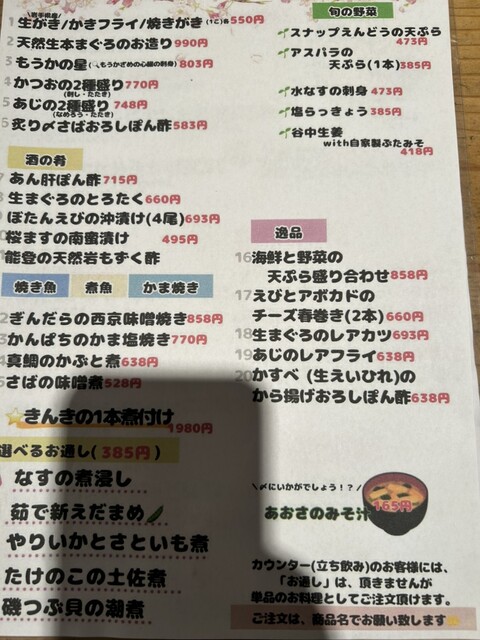 ＼岩手県産／
1 生がき/かきフライ/焼きがき(1コ) 550円
2 天然生本まぐろのお造り990円
3 もうかの星(もうかざめの心臓の刺身)803円
かつおの2種盛り770円
(刺し・たたき)
あじの2種盛り 748円
(なめろう・たたき)
炙り〆さばおろしぽん酢583円
酒の肴
あん肝ぽん酢715円
生まぐろのとろたく660円
ぼたんえびの沖漬け(4尾)693円
桜ますの南蛮漬け 495円
能登の天然岩もずく酢
焼き魚 煮魚 かま焼き
ぎんだらの西京味噌焼き858円
かんぱちのかま塩焼き770円
真鯛のかぶと煮638円
さばの味噌煮528円
きんきの1本煮付け
1980円
選べるお通し(385円)
なすの煮浸し
茹で新えだまめ
やりいかとさといも煮
たけのこの土佐煮
磯つぶ貝の潮煮
旬の野菜
スナップえんどうの天ぷら
473円
アスパラの
天ぷら(1本)385円
水なすの刺身 473円
塩らっきょう385円
谷中生姜
with自家製ぶたみそ
418円
逸品
16 海鮮と野菜の
天ぷら盛り合わせ858円
17 えびとアボカドの
チーズ春巻き(2本)660円
18 生まぐろのレアカツ693円
19 あじのレアフライ638円
20 かすべ (生えいひれ)の
から揚げおろしぽん酢638円
＼〆にいかがでしょう！？／
あおさのみそ汁
165円
カウンター(立ち飲み)のお客様には、
「お通し」は、頂きませんが
単品のお料理としてご注文頂けます。
ご注文は、商品名でお願い致します